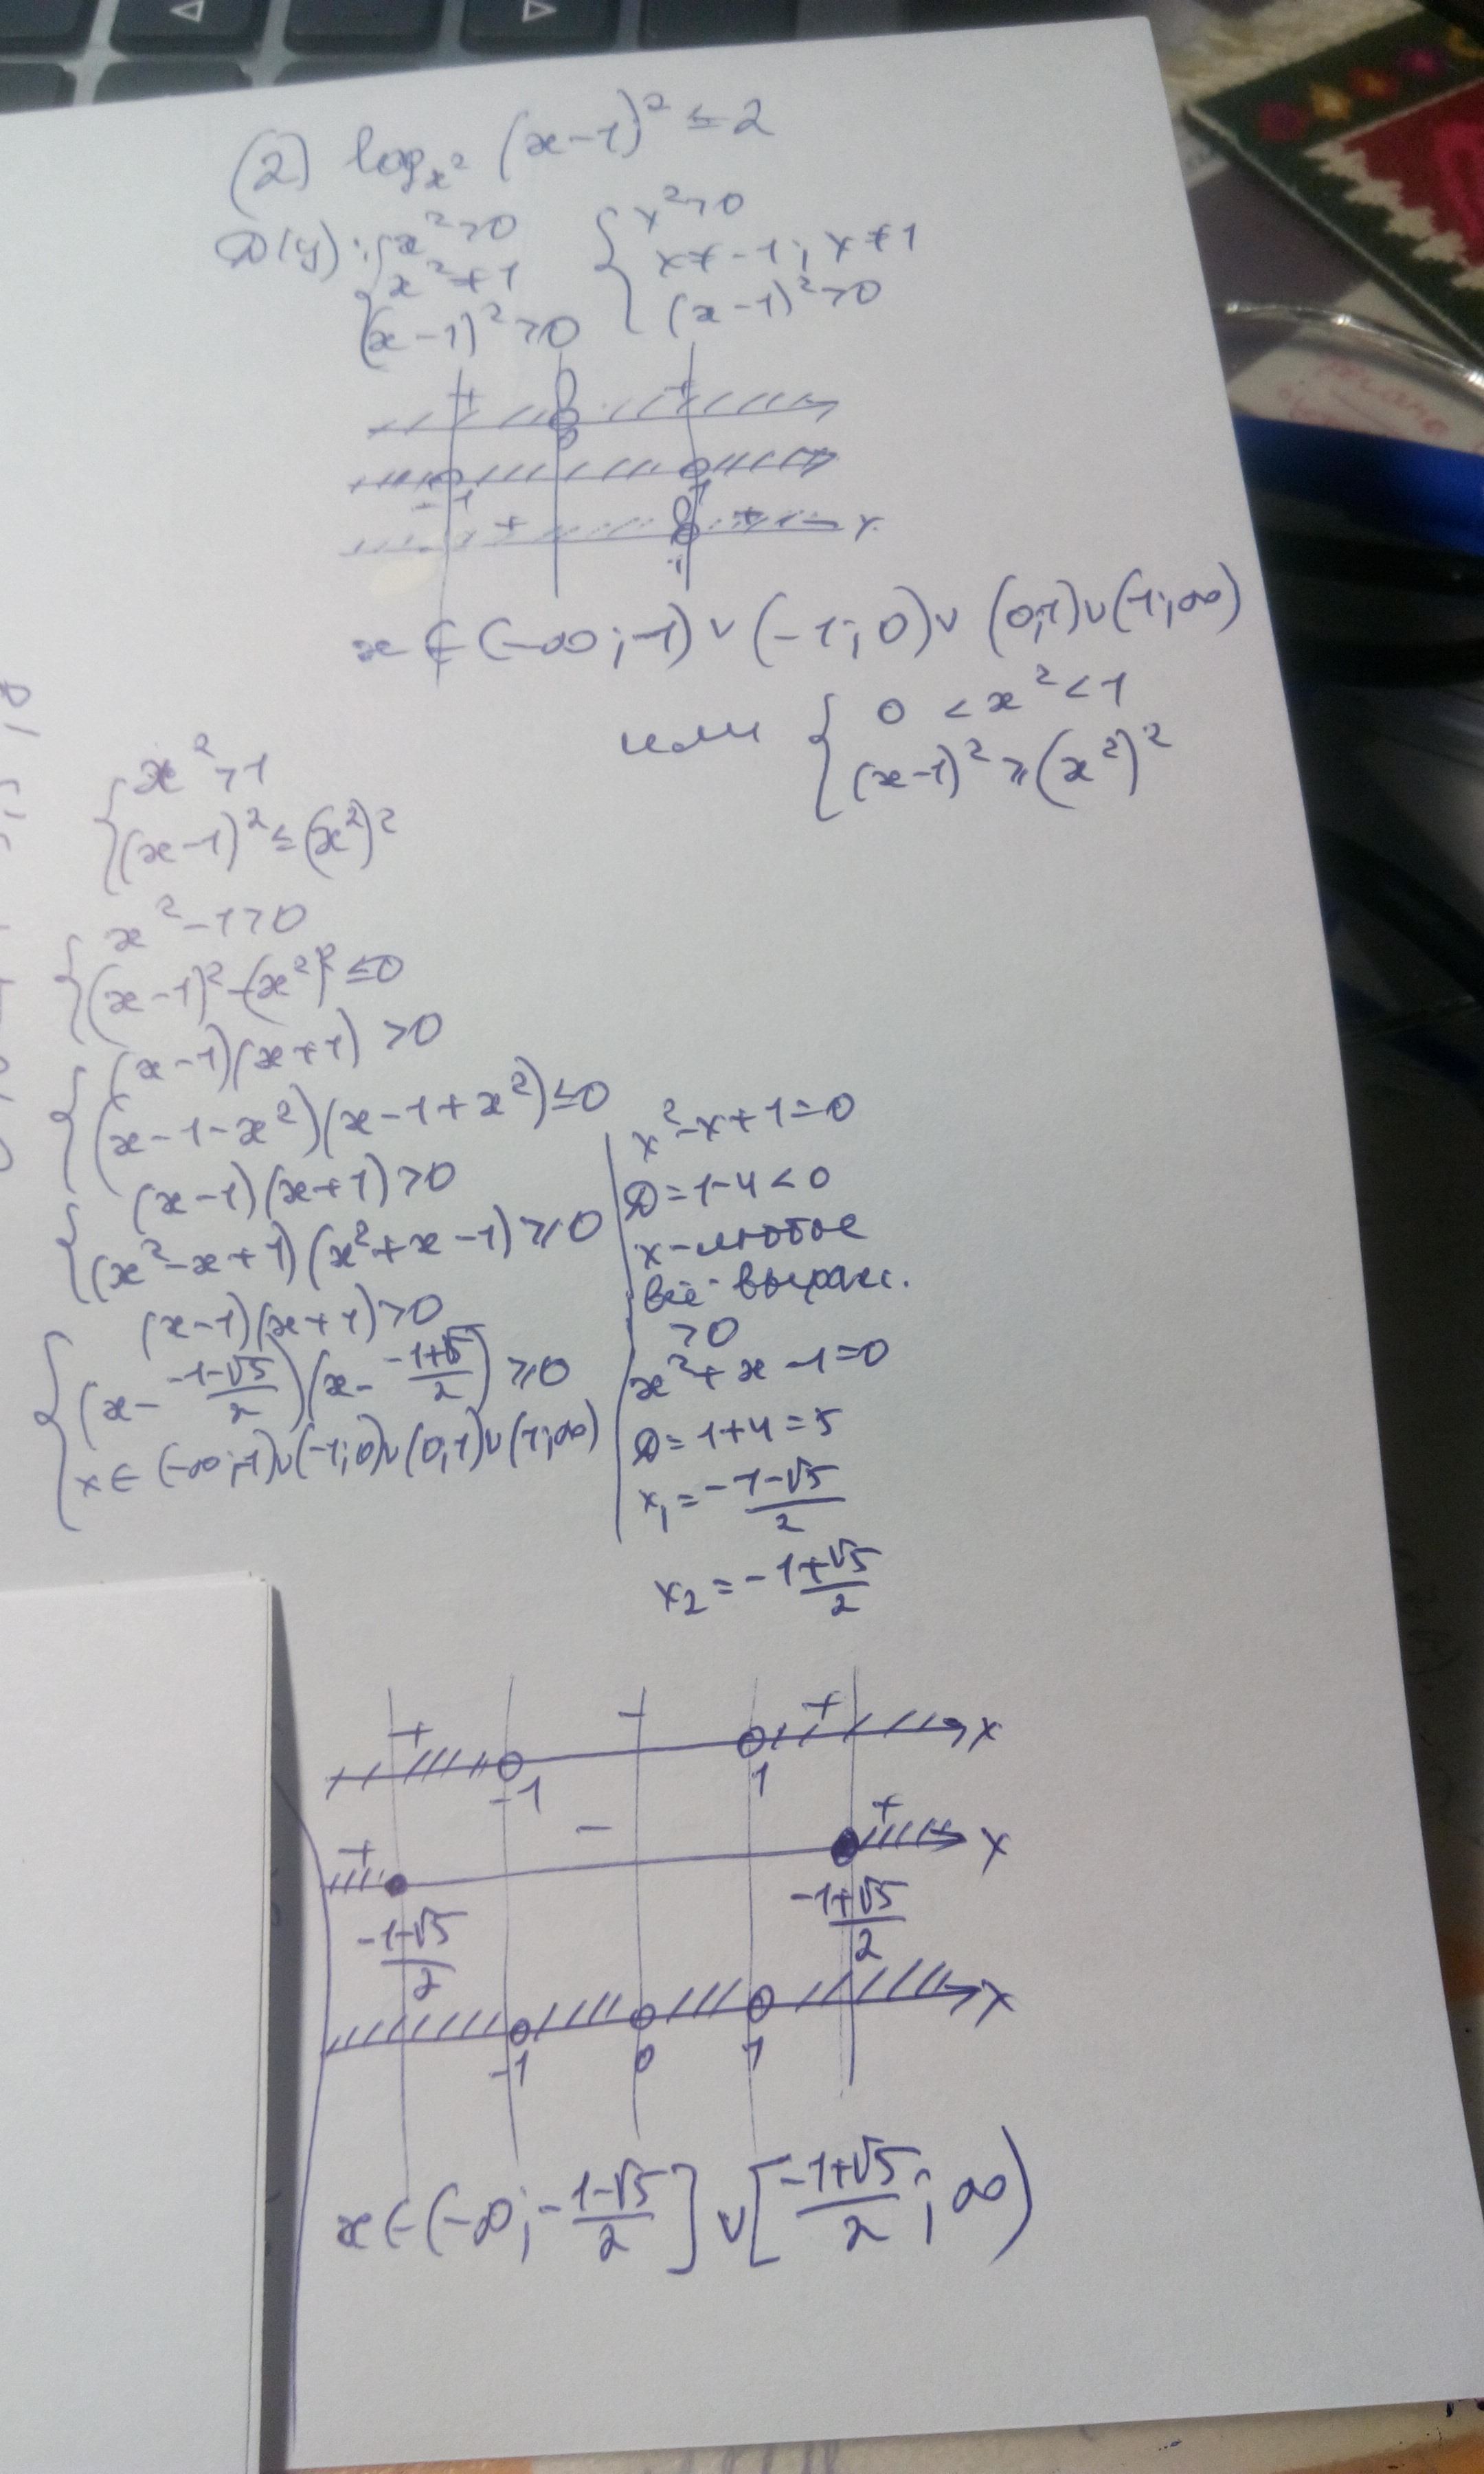 (2) log_{x²} (x-1)² ≤ 2
D(y): { x² > 0 { x² > 0
x² ≠ 1 x ≠ -1; x ≠ 1
(x-1)² > 0 (x-1)² > 0
+ +
0
-1 1
+ + x
1
x ∈ (-∞; -1) ∪ (-1; 0) ∪ (0; 1) ∪ (1; ∞)
{ x² > 1
(x-1)² ≤ (x²)²
или { 0 < x² < 1
(x-1)² ≥ (x²)²
{ x² - 1 > 0
(x-1)² - (x²)² ≤ 0
{ (x-1)(x+1) > 0
(x-1-x²)(x-1+x²) ≤ 0
{ (x-1)(x+1) > 0
(x²-x+1)(x²+x-1) ≥ 0
{ (x-1)(x+1) > 0
(x - \frac{-1-√5}{2})(x - \frac{-1+√5}{2}) ≥ 0
x ∈ (-∞; -1) ∪ (-1; 0) ∪ (0; 1) ∪ (1; ∞)
x² - x + 1 = 0
D = 1 - 4 < 0
x - любое
всё выраж.
> 0
x² + x - 1 = 0
D = 1 + 4 = 5
x₁ = \frac{-1-√5}{2}
x₂ = \frac{-1+√5}{2}
+ - + x
-1 1
+ - + x
\frac{-1-√5}{2} \frac{-1+√5}{2}
x
-1 0 1
x ∈ (-∞; \frac{-1-√5}{2}] ∪ [\frac{-1+√5}{2}; ∞)